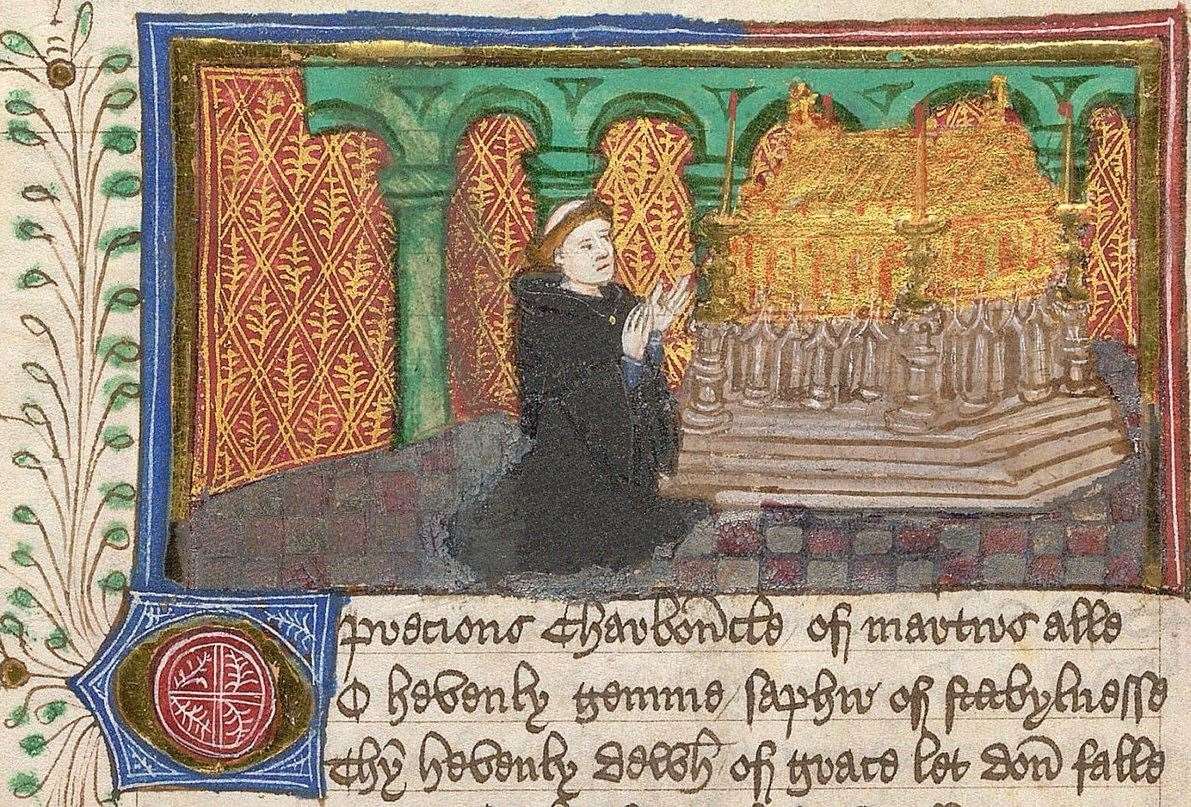 O precious Charbōncle of martirs alle
O hevenly gemme saphir of stabylnesse
Thȳ hevenly dewh of grace let don̄ falle